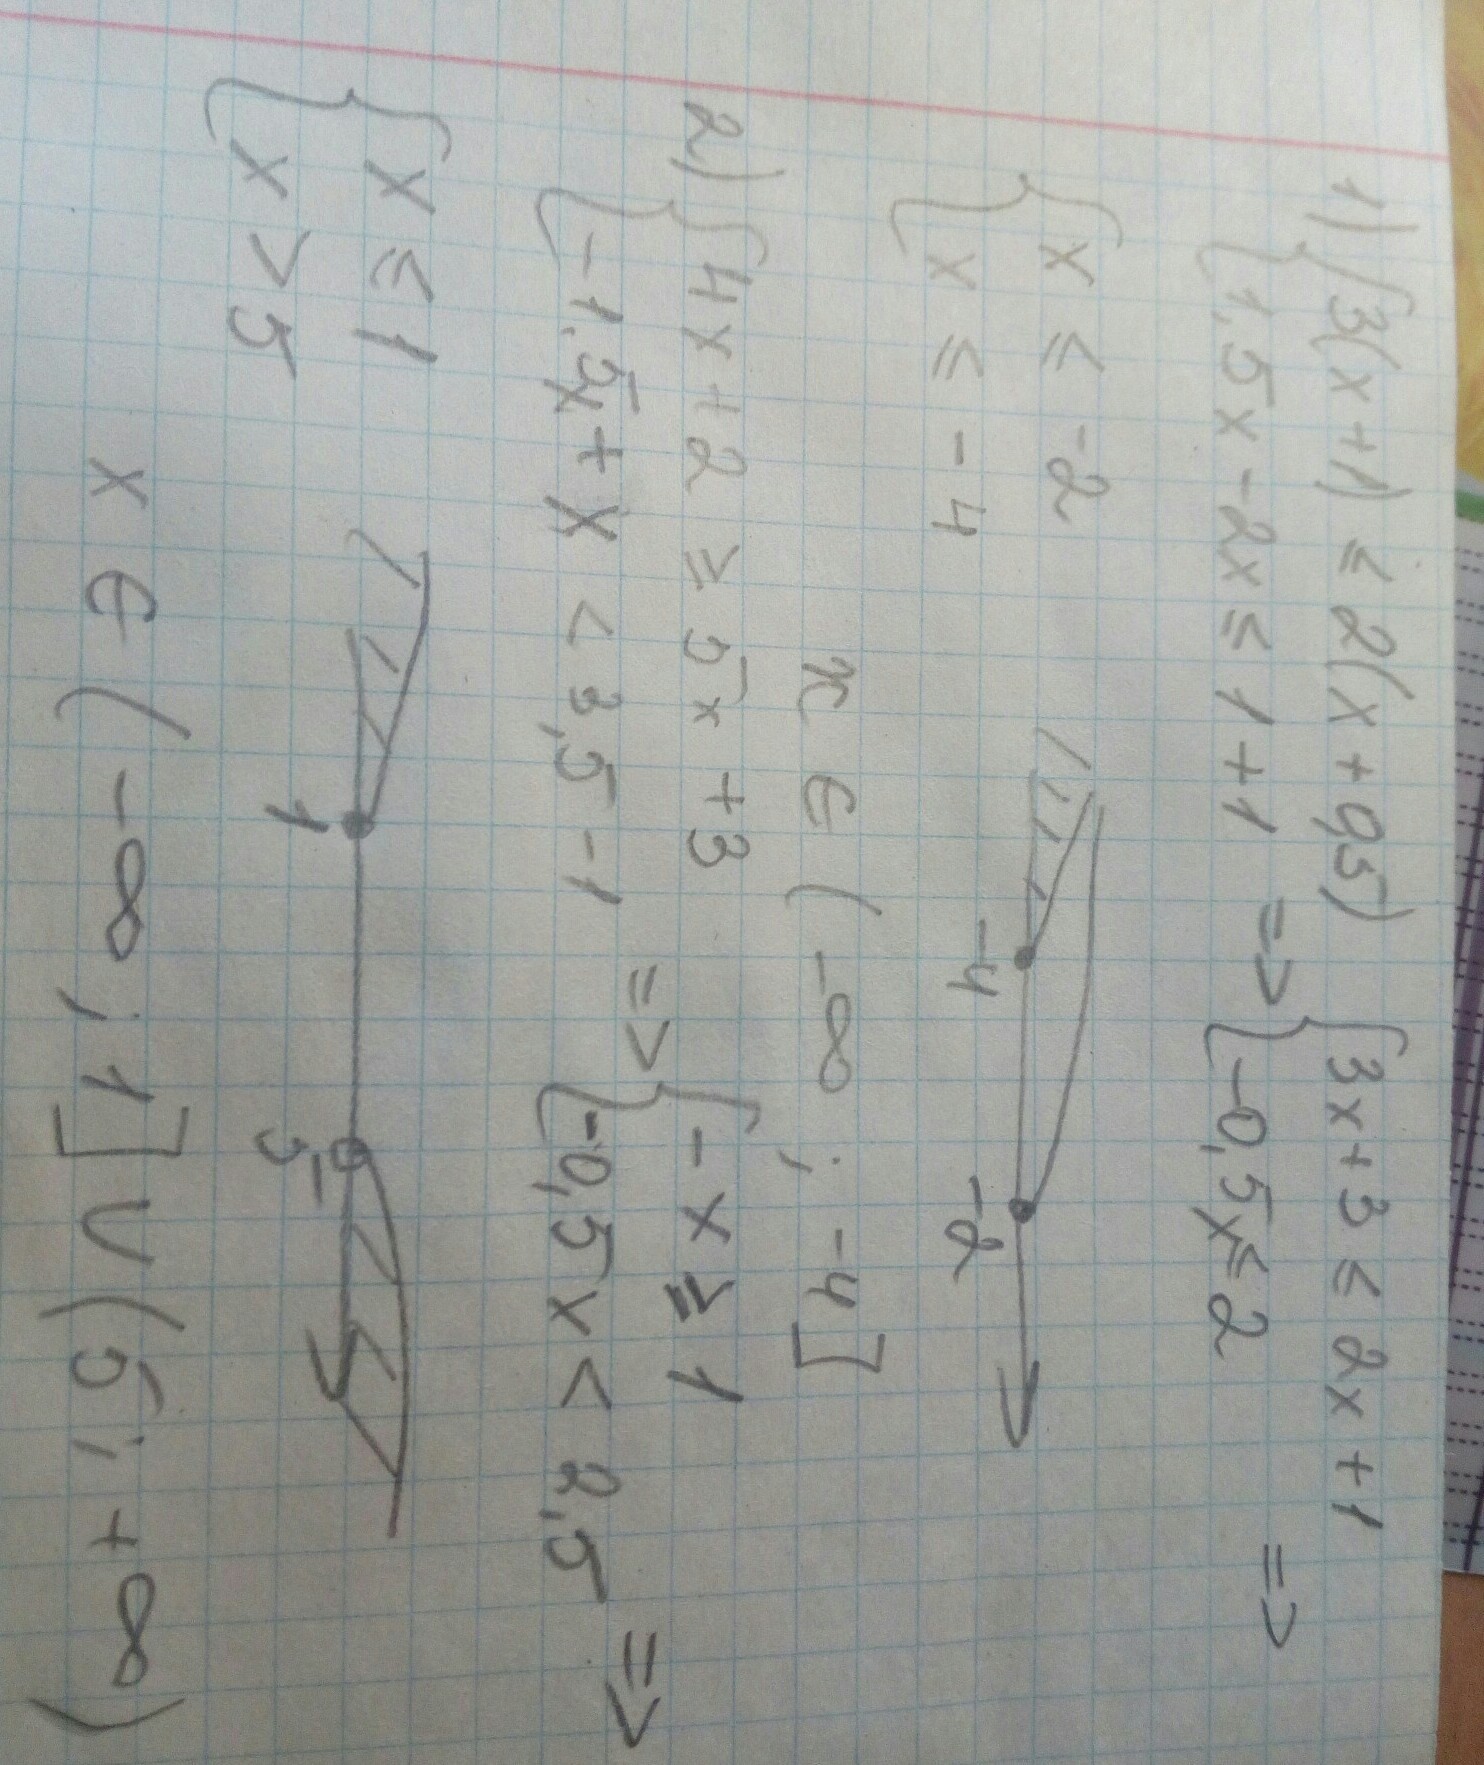 1) { 3(x+1) ≤ 2(x+0,5)
{ 1,5x-2x ≤ 1+1 => { 3x+3 ≤ 2x+1
{ -0,5x ≤ 2 =>
{ x ≤ -2
{ x ≤ -4
-4 -2
x ∈ (-∞; -4]
2) { 4x+2 ≥ 5x+3
{ -1,5x+x < 3,5-1 => { -x ≥ 1
{ -0,5x < 2,5 =>
{ x ≤ 1
{ x > 5
1 5
x ∈ (-∞; 1] U (5; +∞)